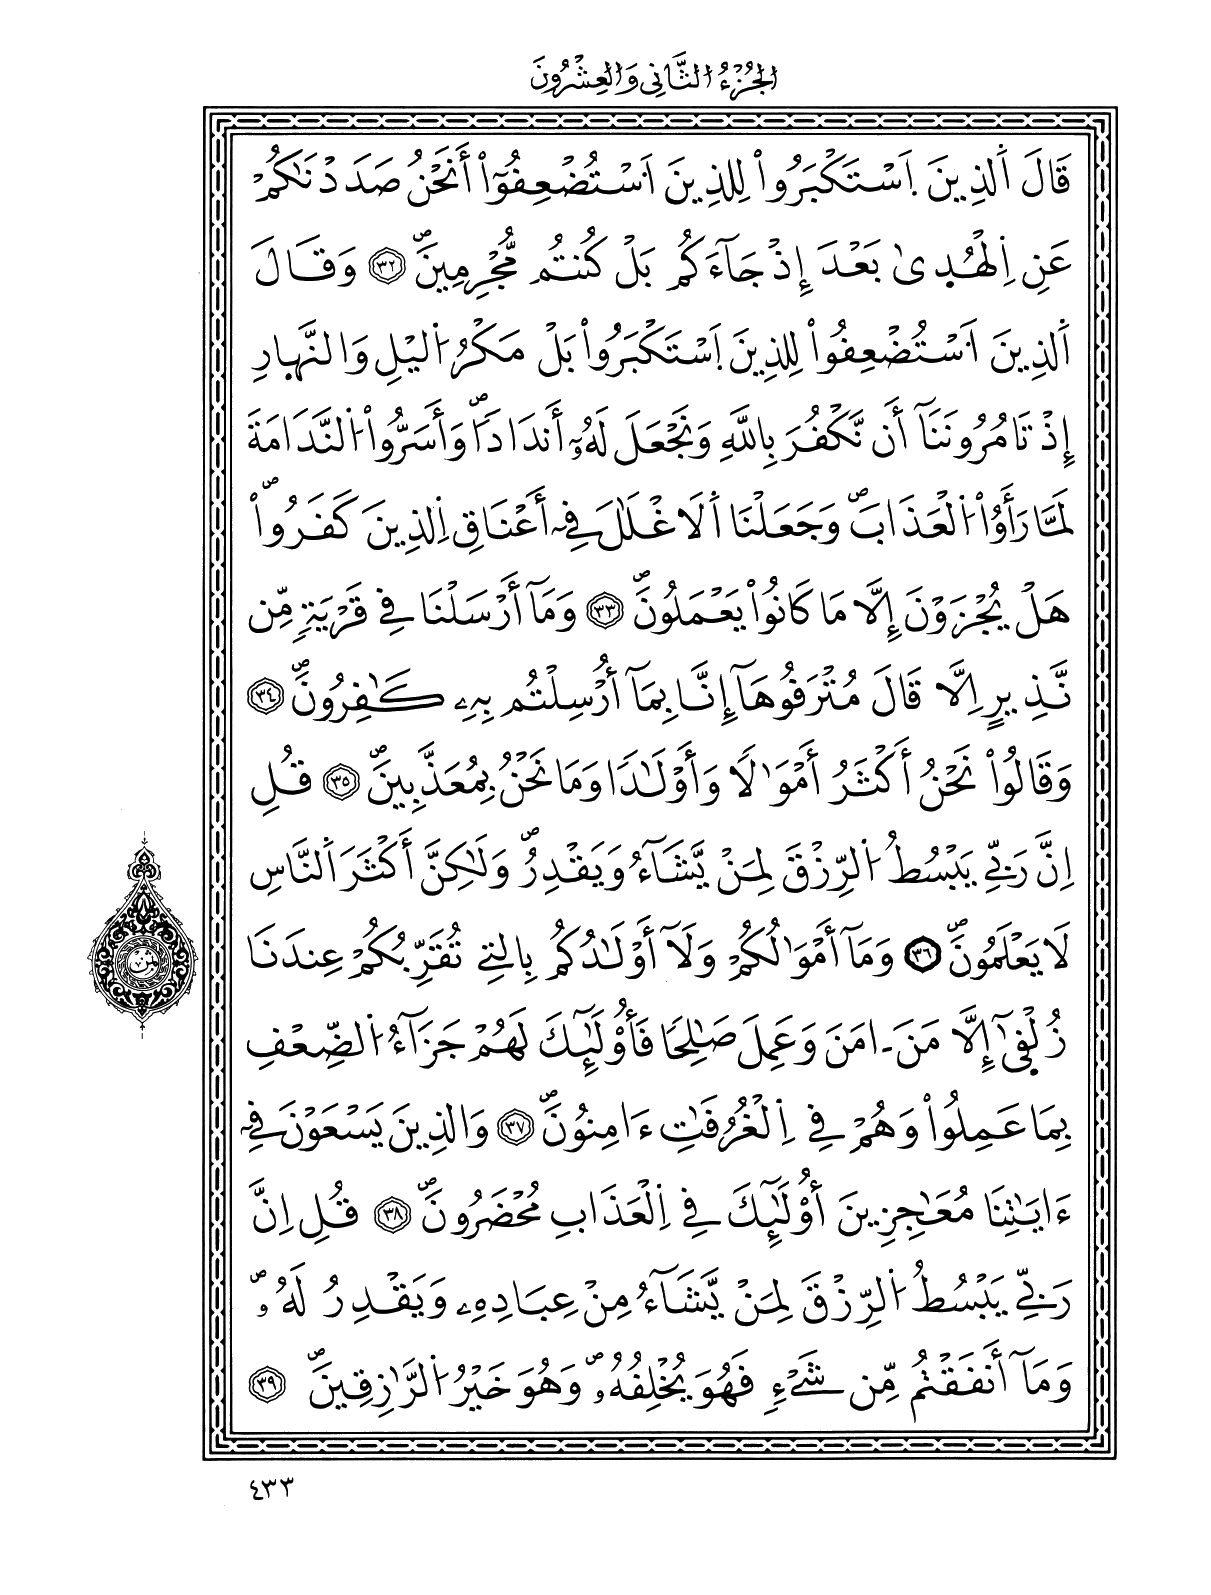 الجُزْءُ الثَّانِي وَالْعِشْرُونَ
قَالَ اَ۬لذِينَ اَ۪سْتَكْبَرُواْ لِلذِينَ اَ۟سْتُضْعِفُوٓاْ أَنَحْنُ صَدَدْنَٰكُمْ
عَنِ اِ۬لْهُد۪ىٰ بَعْدَ إِذْ جَآءَكُم بَلْ كُنتُم مُّجْرِمِينَۖ ٣٢ وَقَالَ
اَ۬لذِينَ اَ۟سْتُضْعِفُواْ لِلذِينَ اَ۪سْتَكْبَرُواْ بَلْ مَكْرُ اُ۬ليْلِ وَالنَّه۪ارِ
إِذْ تَامُرُونَنَآ أَن نَّكْفُرَ بِاللَّهِ وَنَجْعَلَ لَهُۥٓ أَندَاداٗۖ وَأَسَرُّواْ اُ۬لنَّدَامَةَ
لَمَّا رَأَوُاْ اُ۬لْعَذَابَۖ وَجَعَلْنَا اَ۬لَاغْلَٰلَ فِےٓ أَعْنَاقِ اِ۬لذِينَ كَفَرُواْۖ
هَلْ يُجْزَوْنَ إِلَّا مَا كَانُواْ يَعْمَلُونَۖ ٣٣ وَمَآ أَرْسَلْنَا فِے قَرْيَةٖ مِّن
نَّذِيرٍ اِلَّا قَالَ مُتْرَفُوهَآ إِنَّا بِمَآ أُرْسِلْتُم بِهِۦ كَٰفِرُونَۖ ٣٤
وَقَالُواْ نَحْنُ أَكْثَرُ أَمْوَٰلاٗ وَأَوْلَٰداٗ وَمَا نَحْنُ بِمُعَذَّبِينَۖ ٣٥ قُلِ
اِنَّ رَبِّے يَبْسُطُ اُ۬لرِّزْقَ لِمَنْ يَّشَآءُ وَيَقْدِرُۖ وَلَٰكِنَّ أَكْثَرَ اَ۬لنَّاسِ
لَا يَعْلَمُونَۖ ٣٦ وَمَآ أَمْوَٰلُكُمْ وَلَآ أَوْلَٰدُكُم بِالتِے تُقَرِّبُكُمْ عِندَنَا
زُلْف۪ىٰٓ إِلَّا مَنَ اٰمَنَ وَعَمِلَ صَٰلِحاٗ فَأُوْلَٰٓئِكَ لَهُمْ جَزَآءُ اُ۬لضِّعْفِ
بِمَا عَمِلُواْ وَهُمْ فِے اِ۬لْغُرُفَٰتِ ءَامِنُونَۖ ٣٧ وَالذِينَ يَسْعَوْنَ فِےٓ
ءَايَٰتِنَا مُعَٰجِزِينَ أُوْلَٰٓئِكَ فِے اِ۬لْعَذَابِ مُحْضَرُونَۖ ٣٨ قُلِ اِنَّ
رَبِّے يَبْسُطُ اُ۬لرِّزْقَ لِمَنْ يَّشَآءُ مِنْ عِبَادِهِۦ وَيَقْدِرُ لَهُۥۖ
وَمَآ أَنفَقْتُم مِّن شَےْءٖ فَهُوَ يُخْلِفُهُۥۖ وَهُوَ خَيْرُ اُ۬لرَّٰزِقِينَۖ ٣٩
ثمن
٤٣٣